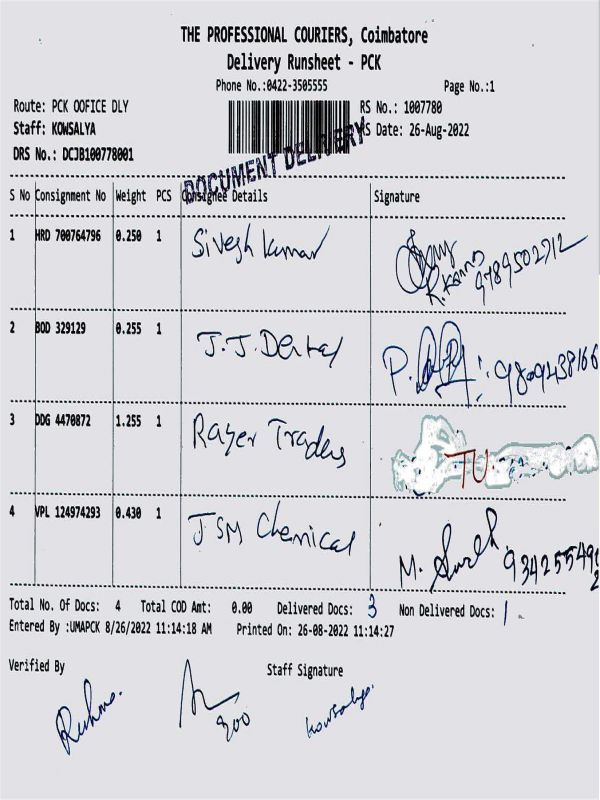 THE PROFESSIONAL COURIERS, Coimbatore
Delivery Runsheet - PCK
Phone No.:0422-3505555 Page No.:1
Route: PCK OOFICE DLY RS No.: 1007780
Staff: KOWSALYA RS Date: 26-Aug-2022
DRS No.: DCJB100778001
DOCUMENT DELIVERY
S No Consignment No Weight PCS Consignee Details Signature
1 HRD 700764796 0.250 1 Sivesh kumar
9789502712
2 BOD 329129 0.255 1 J.J. Dental P. 9809438166
3 DDG 4470872 1.255 1 Traders TU
4 VPL 124974293 0.430 1 JSM Chemical M.
Total No. Of Docs: 4 Total COD Amt: 0.00 Delivered Docs: 3 Non Delivered Docs: 1
Entered By :UMAPCK 8/26/2022 11:14:18 AM Printed On: 26-08-2022 11:14:27
Verified By Staff Signature
Kowsalya